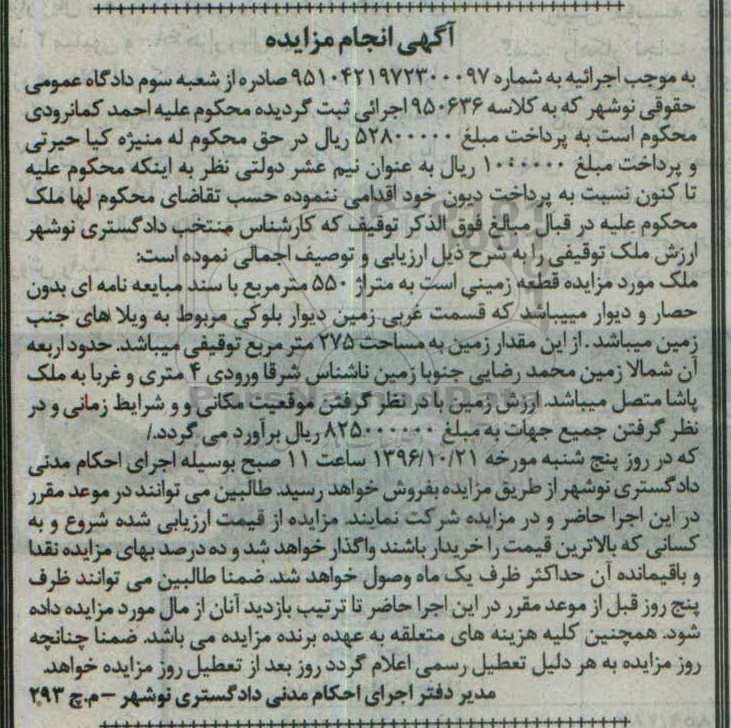 آگهی انجام مزایده
به موجب اجرائیه به شماره ۹۵۱۰۴۲۱۹۷۲۳۰۰۰۹۷ صادره از شعبه سوم دادگاه عمومی
حقوقی نوشهر که به کلاسه ۹۵۰۶۳۶ اجرائی ثبت گردیده محکوم علیه احمد کمانرودی
محکوم است به پرداخت مبلغ ۵۲۸۰۰۰۰۰ ریال در حق محکوم له منیژه کیا حیرتی
و پرداخت مبلغ ۱۰۰۰۰۰۰ ریال به عنوان نیم عشر دولتی نظر به اینکه محکوم علیه
تا کنون نسبت به پرداخت دیون خود اقدامی ننموده حسب تقاضای محکوم لها ملک
محکوم علیه در قبال مبالغ فوق الذکر توقیف که کارشناس منتخب دادگستری نوشهر
ارزش ملک توقیفی را به شرح ذیل ارزیابی و توصیف اجمالی نموده است:
ملک مورد مزایده قطعه زمینی است به متراژ ۵۵۰ مترمربع با سند مبایعه نامه ای بدون
حصار و دیوار میبباشد که قسمت غربی زمین دیوار بلوکی مربوط به ویلا های جنب
زمین میباشد . از این مقدار زمین به مساحت ۲۷۵ متر مربع توقیفی میباشد. حدود اربعه
آن شمالا زمین محمد رضایی جنوبا زمین ناشناس شرقا ورودی ۴ متری و غربا به ملک
پاشا متصل میباشد. ارزش زمین با در نظر گرفتن موقعیت مکانی و و شرایط زمانی و در
نظر گرفتن جمیع جهات به مبلغ ۸۲۵۰۰۰۰۰۰ ریال برآورد می گردد./
که در روز پنج شنبه مورخه ۱۳۹۶/۱۰/۲۱ ساعت ۱۱ صبح بوسیله اجرای احکام مدنی
دادگستری نوشهر از طریق مزایده بفروش خواهد رسید. طالبین می توانند در موعد مقرر
در این اجرا حاضر و در مزایده شرکت نمایند. مزایده از قیمت ارزیابی شده شروع و به
کسانی که بالاترین قیمت را خریدار باشند واگذار خواهد شد و ده درصد بهای مزایده نقدا
و باقیمانده آن حداکثر ظرف یک ماه وصول خواهد شد. ضمنا طالبین می توانند ظرف
پنج روز قبل از موعد مقرر در این اجرا حاضر تا ترتیب بازدید آنان از مال مورد مزایده داده
شود. همچنین کلیه هزینه های متعلقه به عهده برنده مزایده می باشد. ضمنا چنانچه
روز مزایده به هر دلیل تعطیل رسمی اعلام گردد روز بعد از تعطیل روز مزایده خواهد.
مدیر دفتر اجرای احکام مدنی دادگستری نوشهر – م.چ ۲۹۳